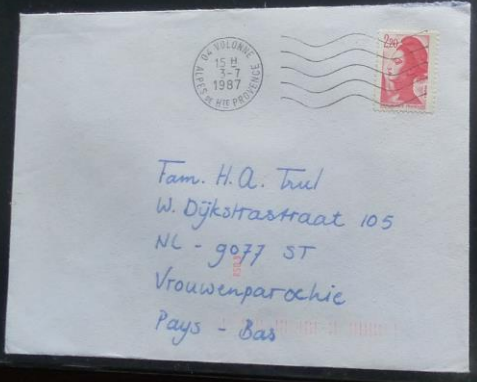 04 VOLONNE
15 H
3-7
1987
ALPES DE HTE PROVENCE
2,20
Fam. H. A. Trul
W. Dijkstrastraat 105
NL - 9077 ST
Vrouwenparochie
Pays - Bas